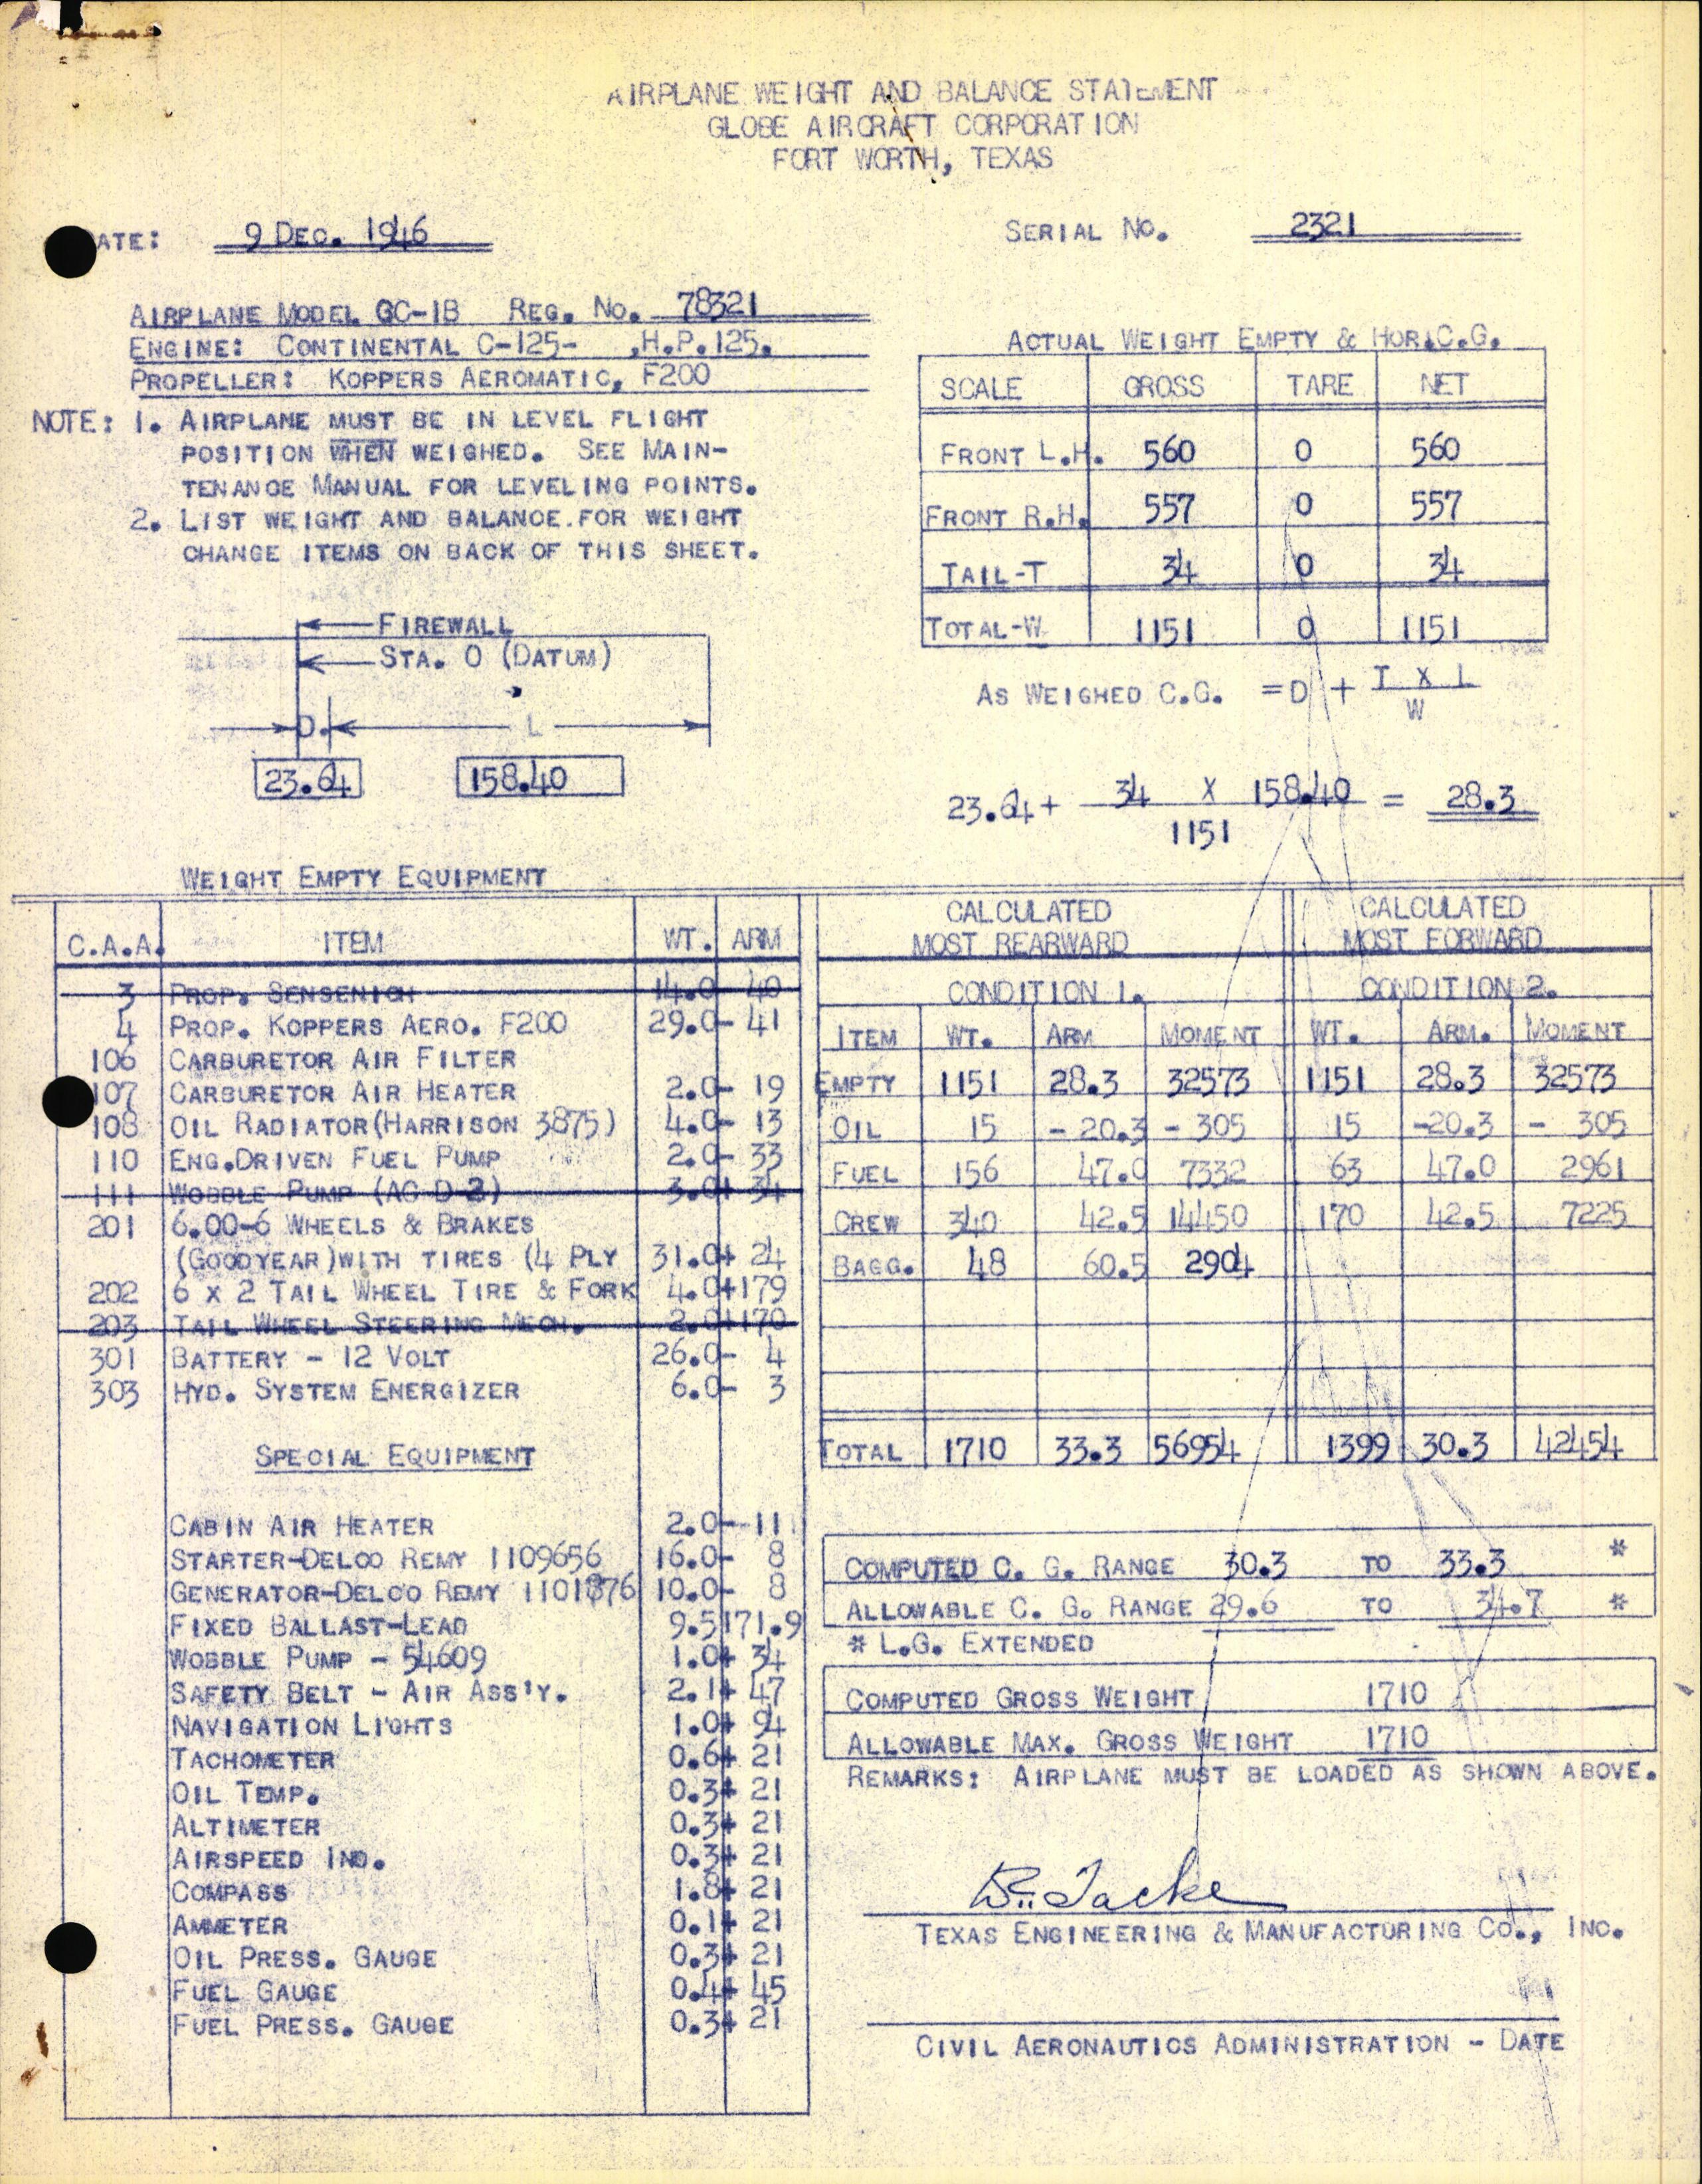 AIRPLANE WEIGHT AND BALANCE STATEMENT
GLOBE AIRCRAFT CORPORATION
FORT WORTH, TEXAS
ATE: 9 DEC. 1946
SERIAL NO. 2321
AIRPLANE MODEL GC-1B REG. NO. 78321
ENGINE: CONTINENTAL C-125- ,H.P.125.
PROPELLER: KOPPERS AEROMATIC, F200
NOTE: 1. AIRPLANE MUST BE IN LEVEL FLIGHT
POSITION WHEN WEIGHED. SEE MAIN-
TENANCE MANUAL FOR LEVELING POINTS.
2. LIST WEIGHT AND BALANCE.FOR WEIGHT
CHANGE ITEMS ON BACK OF THIS SHEET.
ACTUAL WEIGHT EMPTY & HOR.C.G.
SCALE GROSS TARE NET
FRONT L.H. 560 0 560
FRONT R.H. 557 0 557
TAIL-T 34 0 34
TOTAL-W 1151 0 1151
FIREWALL
STA. 0 (DATUM)
D. L
23.64 158.40
AS WEIGHED C.G. = D + T X L
W
23.64 + 34 X 158.40 = 28.3
1151
WEIGHT EMPTY EQUIPMENT
C.A.A. ITEM WT. ARM
3 PROP. SENSENICH 14.0- 40
4 PROP. KOPPERS AERO. F200 29.0- 41
106 CARBURETOR AIR FILTER
107 CARBURETOR AIR HEATER 2.0- 19
108 OIL RADIATOR(HARRISON 3875) 4.0- 13
110 ENG.DRIVEN FUEL PUMP 2.0- 33
111 WOBBLE PUMP (AC D-2) 3.0+ 34
201 6.00-6 WHEELS & BRAKES
(GOODYEAR)WITH TIRES (4 PLY 31.0+ 24
202 6 X 2 TAIL WHEEL TIRE & FORK 4.0+179
203 TAIL WHEEL STEERING MECH. 2.0+170
301 BATTERY - 12 VOLT 26.0- 4
303 HYD. SYSTEM ENERGIZER 6.0- 3
SPECIAL EQUIPMENT
CABIN AIR HEATER 2.0- 11
STARTER-DELCO REMY 1109656 16.0- 8
GENERATOR-DELCO REMY 1101876 10.0- 8
FIXED BALLAST-LEAD 9.5 171.9
WOBBLE PUMP - 54609 1.0+ 34
SAFETY BELT - AIR ASS'Y. 2.1+ 47
NAVIGATION LIGHTS 1.0+ 94
TACHOMETER 0.6+ 21
OIL TEMP. 0.3+ 21
ALTIMETER 0.3+ 21
AIRSPEED IND. 0.3+ 21
COMPASS 1.8+ 21
AMMETER 0.1+ 21
OIL PRESS. GAUGE 0.3+ 21
FUEL GAUGE 0.4+ 45
FUEL PRESS. GAUGE 0.3+ 21
CALCULATED CALCULATED
MOST REARWARD MOST FORWARD
CONDITION 1. CONDITION 2.
ITEM WT. ARM MOMENT WT. ARM. MOMENT
EMPTY 1151 28.3 32573 1151 28.3 32573
OIL 15 - 20.3 - 305 15 -20.3 - 305
FUEL 156 47.0 7332 63 47.0 2961
CREW 340 42.5 14450 170 42.5 7225
BAGG. 48 60.5 2904
TOTAL 1710 33.3 56954 1399 30.3 42454
COMPUTED C. G. RANGE 30.3 TO 33.3 *
ALLOWABLE C. G. RANGE 29.6 TO 34.7 *
* L.G. EXTENDED
COMPUTED GROSS WEIGHT 1710
ALLOWABLE MAX. GROSS WEIGHT 1710
REMARKS: AIRPLANE MUST BE LOADED AS SHOWN ABOVE.
TEXAS ENGINEERING & MANUFACTURING CO., INC.
CIVIL AERONAUTICS ADMINISTRATION - DATE